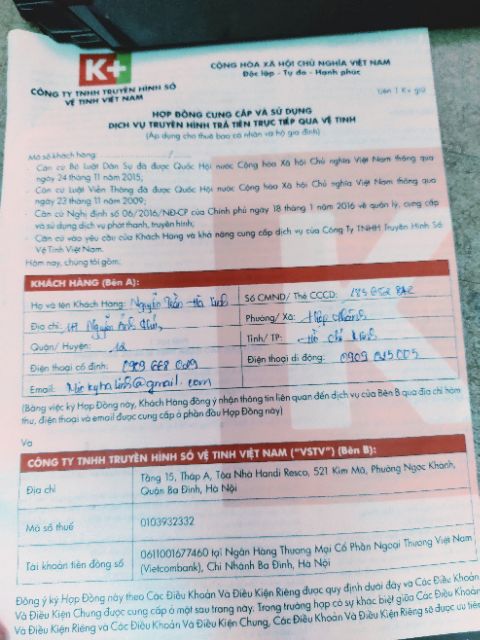 K+
CÔNG TY TNHH TRUYỀN HÌNH SỐ
VỆ TINH VIỆT NAM
CỘNG HÒA XÃ HỘI CHỦ NGHĨA VIỆT NAM
Độc lập - Tự do - Hạnh phúc
Liên 1 K+ giữ
HỢP ĐỒNG CUNG CẤP VÀ SỬ DỤNG
DỊCH VỤ TRUYỀN HÌNH TRẢ TIỀN TRỰC TIẾP QUA VỆ TINH
(Áp dụng cho thuê bao cá nhân và hộ gia đình)
Mã số khách hàng:
- Căn cứ Bộ Luật Dân Sự đã được Quốc Hội nước Cộng hòa Xã hội Chủ nghĩa Việt Nam thông qua
ngày 24 tháng 11 năm 2015;
- Căn cứ Luật Viễn Thông đã được Quốc Hội nước Cộng hòa Xã hội Chủ nghĩa Việt Nam thông qua
ngày 23 tháng 11 năm 2009;
- Căn cứ Nghị định số 06/2016/NĐ-CP của Chính phủ ngày 18 tháng 1 năm 2016 về quản lý, cung cấp
và sử dụng dịch vụ phát thanh, truyền hình;
- Căn cứ vào yêu cầu của Khách Hàng và khả năng cung cấp dịch vụ của Công Ty TNHH Truyền Hình Số
Vệ Tinh Việt Nam.
Hôm nay, chúng tôi gồm:
KHÁCH HÀNG (Bên A):
Họ và tên Khách Hàng: Nguyễn Trần Hà Linh
Số CMND/ Thẻ CCCD:
Địa chỉ: Nguyễn Ảnh Thủ,
Phường/ Xã: Hiệp Thành
Quận/ Huyện: 12
Tỉnh/ TP: Hồ Chí Minh
Điện thoại cố định: 0909 668 009
Điện thoại di động: 0909 045 005
Email: @gmail.com
(Bằng việc ký Hợp Đồng này, Khách Hàng đồng ý nhận thông tin liên quan đến dịch vụ của Bên B qua địa chỉ hòm
thư, điện thoại và email được cung cấp ở phần đầu Hợp Đồng này)
Và
CÔNG TY TNHH TRUYỀN HÌNH SỐ VỆ TINH VIỆT NAM ("VSTV") (Bên B):
Địa chỉ
Tầng 15, Tháp A, Tòa Nhà Handi Resco, 521 Kim Mã, Phường Ngọc Khánh,
Quận Ba Đình, Hà Nội
Mã số thuế
0103932332
Tài khoản tiền đồng số
0611001677460 tại Ngân Hàng Thương Mại Cổ Phần Ngoại Thương Việt Nam
(Vietcombank), Chi Nhánh Ba Đình, Hà Nội
Đồng ý ký Hợp Đồng này theo Các Điều Khoản Và Điều Kiện Riêng được quy định dưới đây và Các Điều Khoản
Và Điều Kiện Chung được cung cấp ở mặt sau trang này. Trong trường hợp có sự khác biệt giữa Các Điều Khoản
Và Điều Kiện Riêng và Các Điều Khoản Và Điều Kiện Chung, Các Điều Khoản Và Điều Kiện Riêng sẽ được ưu tiên